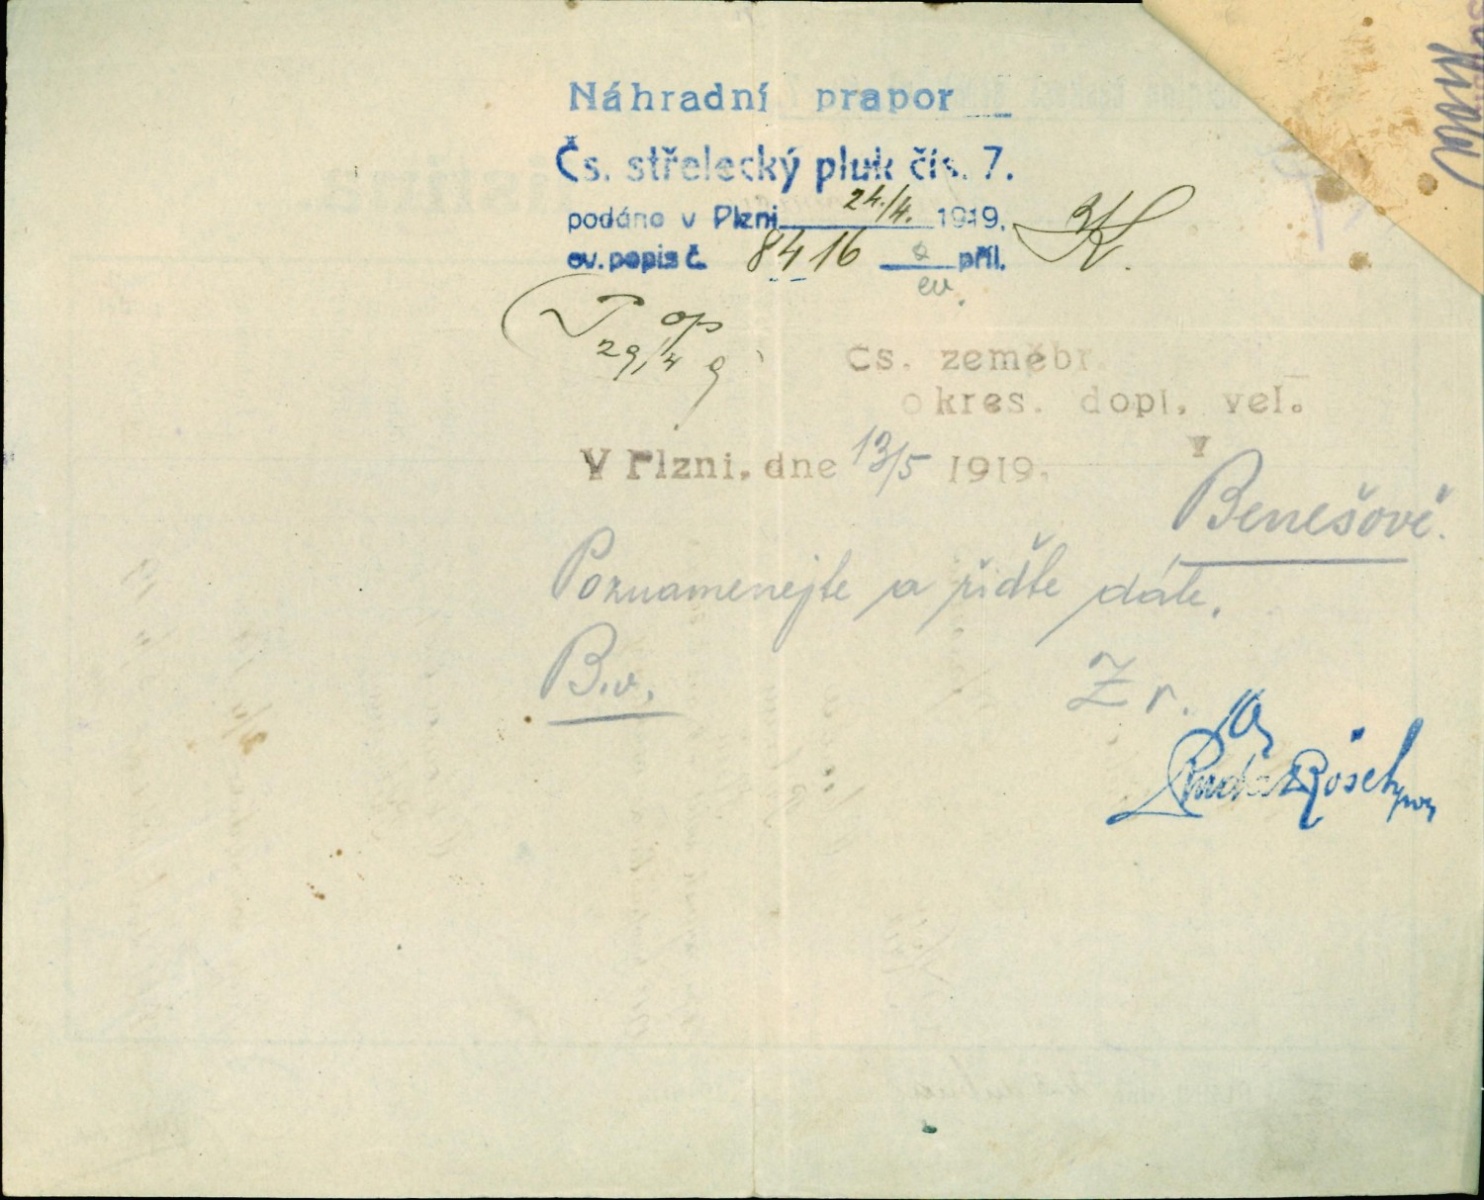 Náhradní prapor
Čs. střelecký pluk čís. 7.
podáno v Plzni 24./4. 1919.
ev. popis č. 8416 příl.
ev.
29/4
Čs. zeměbr.
okres. dopl. vel.
V Plzni, dne 13/5 1919.
v
Benešově.
Poznamenejte a řiďte dále.
B.v.
Z r.
Rösch